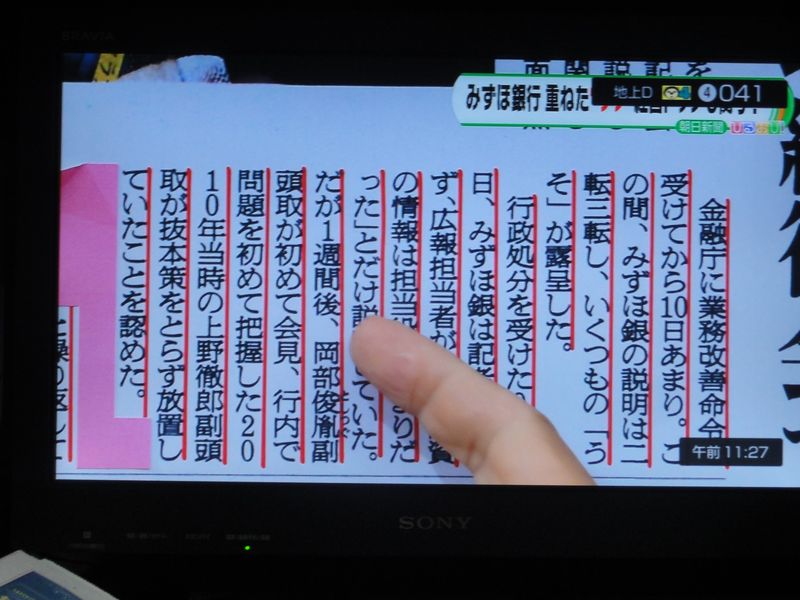 BRAVIA
面
関
説
記
を
みずほ銀行 重ねた
地上D ④041
朝日新聞
金融庁に業務改善命令
受けてから10日あまり。こ
の間、みずほ銀の説明は二
転三転し、いくつもの「う
そ」が露呈した。
行政処分を受けた
日、みずほ銀は記者
ず、広報担当者が
の情報は担当 まりだ
った」とだけ説 ていた。
だが1週間後、岡部俊胤副
頭取が初めて会見、行内で
問題を初めて把握した20
10年当時の上野徹郎副頭
取が抜本策をとらず放置し
ていたことを認めた。
と繰り返して
午前11:27
SONY